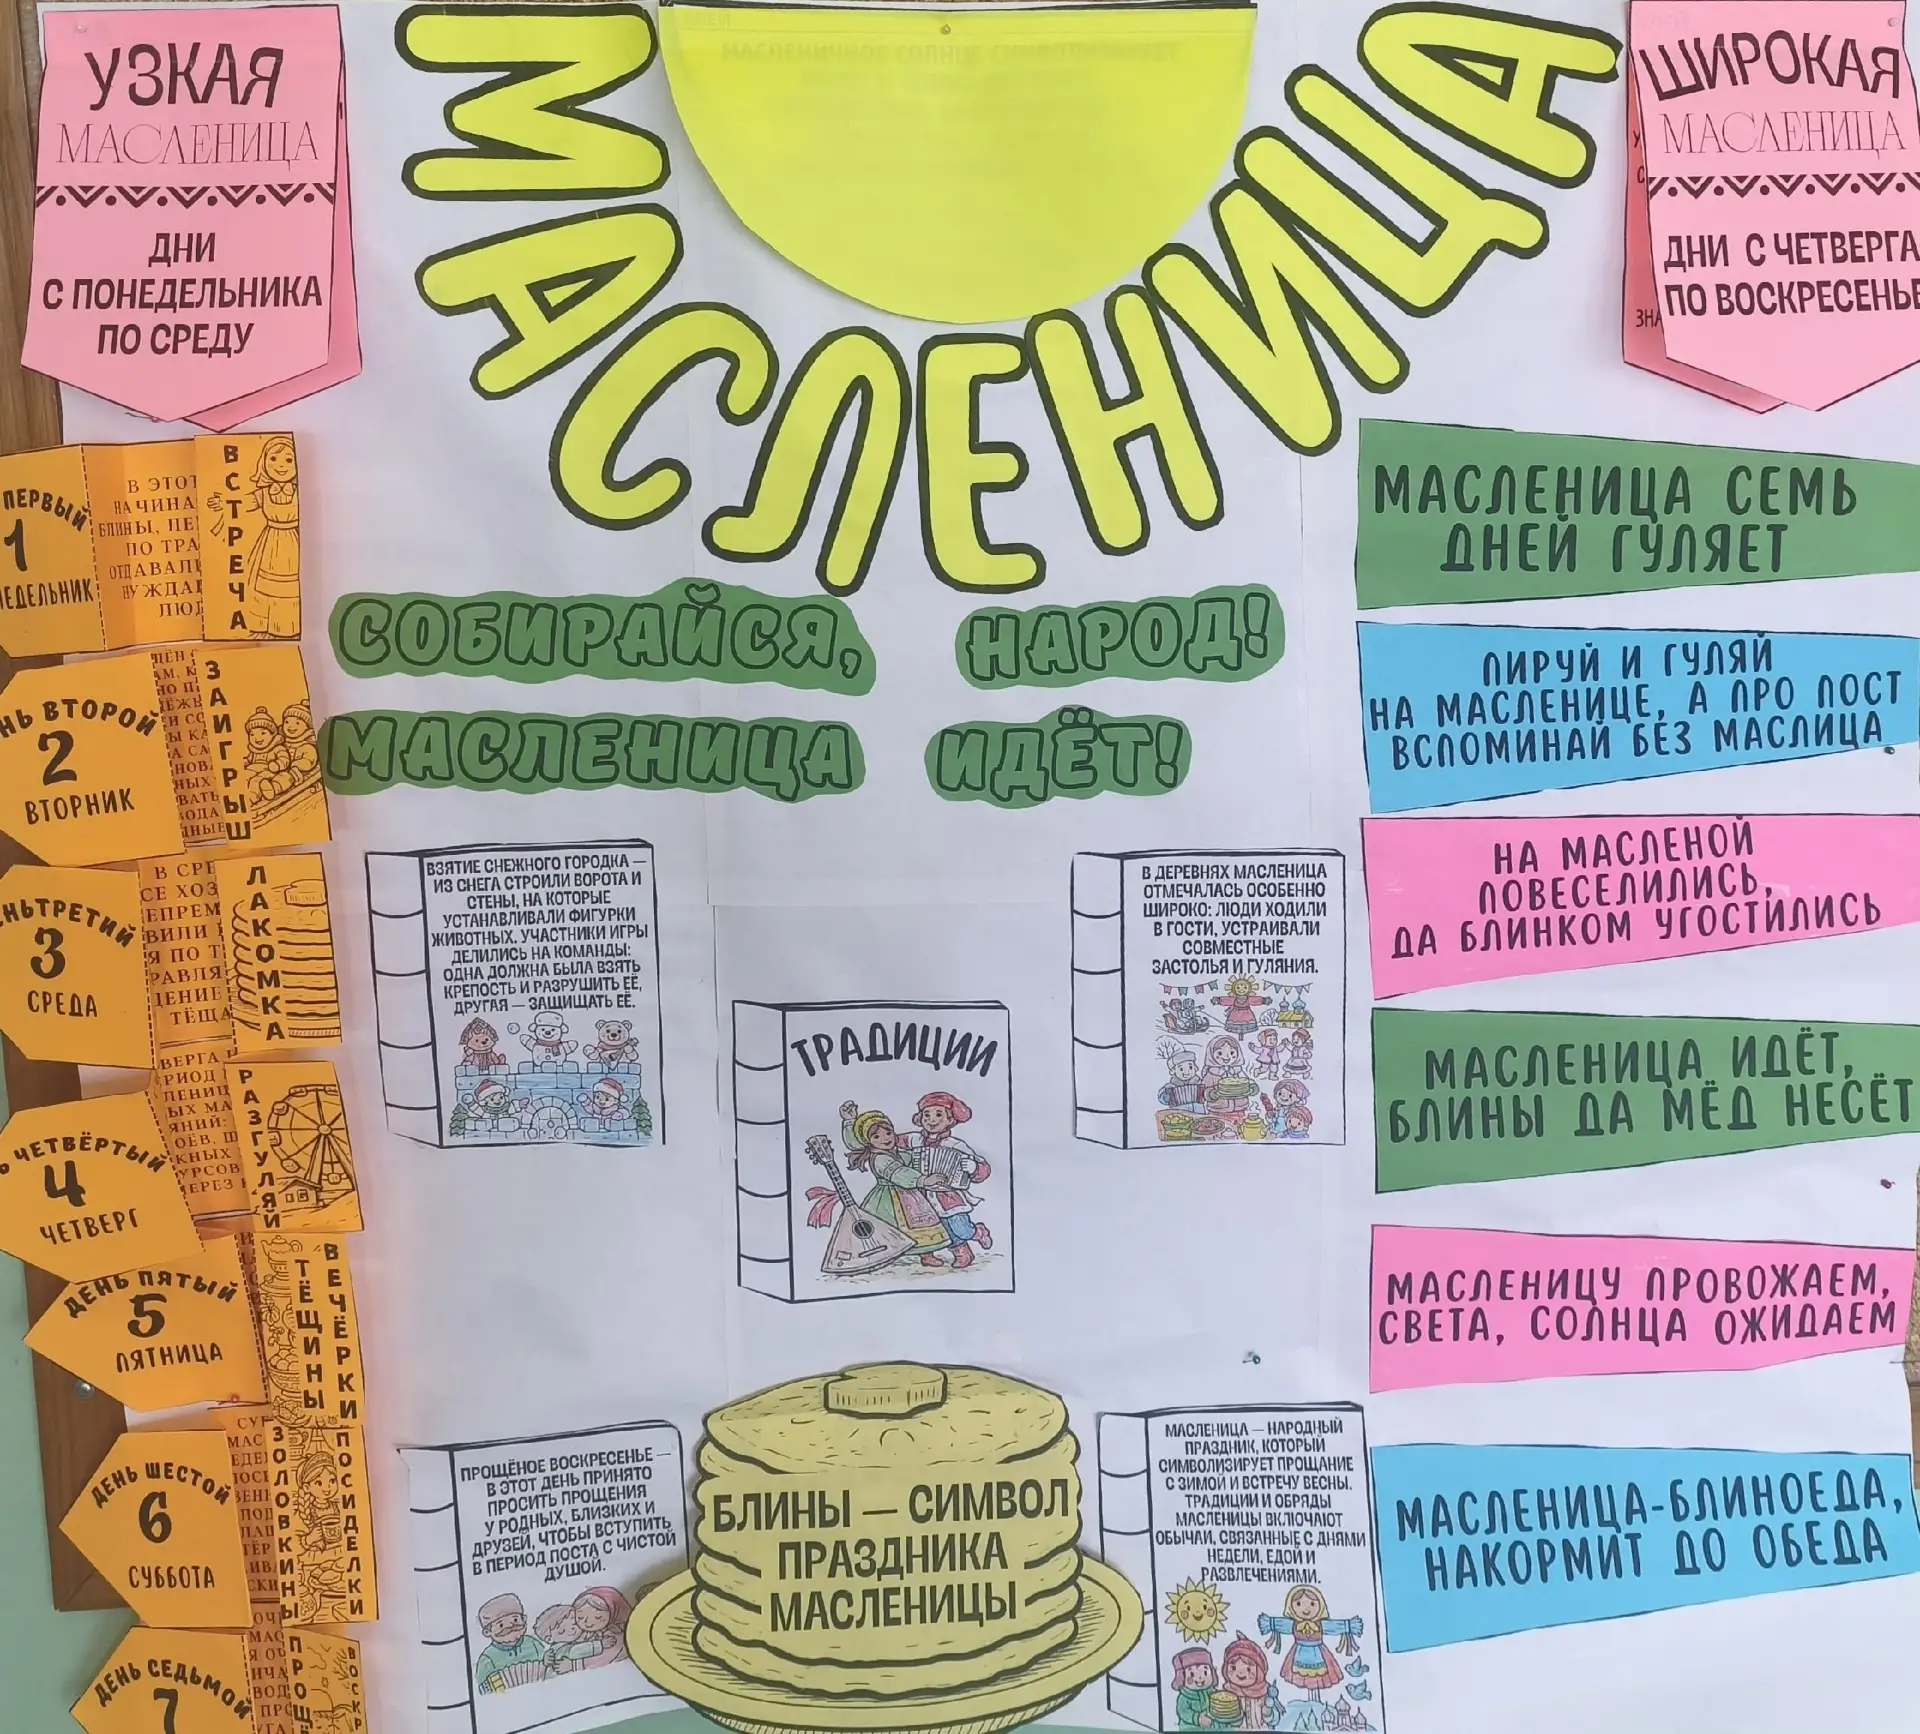 УЗКАЯ
МАСЛЕНИЦА
ДНИ
С ПОНЕДЕЛЬНИКА
ПО СРЕДУ
МАСЛЕНИЦА
ШИРОКАЯ
МАСЛЕНИЦА
ДНИ С ЧЕТВЕРГА
ПО ВОСКРЕСЕНЬЕ
СОБИРАЙСЯ, НАРОД!
МАСЛЕНИЦА ИДЁТ!
ПЕРВЫЙ
1
В ЭТОТ
БЛИНЫ,
ПО
ВСТРЕЧА
ВТОРОЙ
2
ВТОРНИК
ЗАИГРЫШ
ТРЕТИЙ
3
СРЕДА
В
ПО
ТЁЩА
ЛАКОМКА
ЧЕТВЁРТЫЙ
4
ЧЕТВЕРГ
РАЗГУЛЯЙ
ДЕНЬ ПЯТЫЙ
5
ПЯТНИЦА
ТЁЩИНЫ
ВЕЧЁРКИ
ДЕНЬ ШЕСТОЙ
6
СУББОТА
ЗОЛОВКИНЫ
ПОСИДЕЛКИ
ДЕНЬ СЕДЬМОЙ
7
ВЗЯТИЕ СНЕЖНОГО ГОРОДКА —
ИЗ СНЕГА СТРОИЛИ ВОРОТА И
СТЕНЫ, НА КОТОРЫЕ
УСТАНАВЛИВАЛИ ФИГУРКИ
ЖИВОТНЫХ. УЧАСТНИКИ ИГРЫ
ДЕЛИЛИСЬ НА КОМАНДЫ:
ОДНА ДОЛЖНА БЫЛА ВЗЯТЬ
КРЕПОСТЬ И РАЗРУШИТЬ ЕЁ,
ДРУГАЯ — ЗАЩИЩАТЬ ЕЁ.
ТРАДИЦИИ
В ДЕРЕВНЯХ МАСЛЕНИЦА
ОТМЕЧАЛАСЬ ОСОБЕННО
ШИРОКО: ЛЮДИ ХОДИЛИ
В ГОСТИ, УСТРАИВАЛИ
СОВМЕСТНЫЕ
ЗАСТОЛЬЯ И ГУЛЯНИЯ.
ПРОЩЁНОЕ ВОСКРЕСЕНЬЕ —
В ЭТОТ ДЕНЬ ПРИНЯТО
ПРОСИТЬ ПРОЩЕНИЯ
У РОДНЫХ, БЛИЗКИХ И
ДРУЗЕЙ, ЧТОБЫ ВСТУПИТЬ
В ПЕРИОД ПОСТА С ЧИСТОЙ
ДУШОЙ.
БЛИНЫ — СИМВОЛ
ПРАЗДНИКА
МАСЛЕНИЦЫ
МАСЛЕНИЦА — НАРОДНЫЙ
ПРАЗДНИК, КОТОРЫЙ
СИМВОЛИЗИРУЕТ ПРОЩАНИЕ
С ЗИМОЙ И ВСТРЕЧУ ВЕСНЫ.
ТРАДИЦИИ И ОБРЯДЫ
МАСЛЕНИЦЫ ВКЛЮЧАЮТ
ОБЫЧАИ, СВЯЗАННЫЕ С ДНЯМИ
НЕДЕЛИ, ЕДОЙ И
РАЗВЛЕЧЕНИЯМИ.
МАСЛЕНИЦА СЕМЬ
ДНЕЙ ГУЛЯЕТ
ПИРУЙ И ГУЛЯЙ
НА МАСЛЕНИЦЕ, А ПРО ПОСТ
ВСПОМИНАЙ БЕЗ МАСЛИЦА
НА МАСЛЕНОЙ
ПОВЕСЕЛИЛИСЬ,
ДА БЛИНКОМ УГОСТИЛИСЬ
МАСЛЕНИЦА ИДЁТ,
БЛИНЫ ДА МЁД НЕСЁТ
МАСЛЕНИЦУ ПРОВОЖАЕМ,
СВЕТА, СОЛНЦА ОЖИДАЕМ
МАСЛЕНИЦА-БЛИНОЕДА,
НАКОРМИТ ДО ОБЕДА